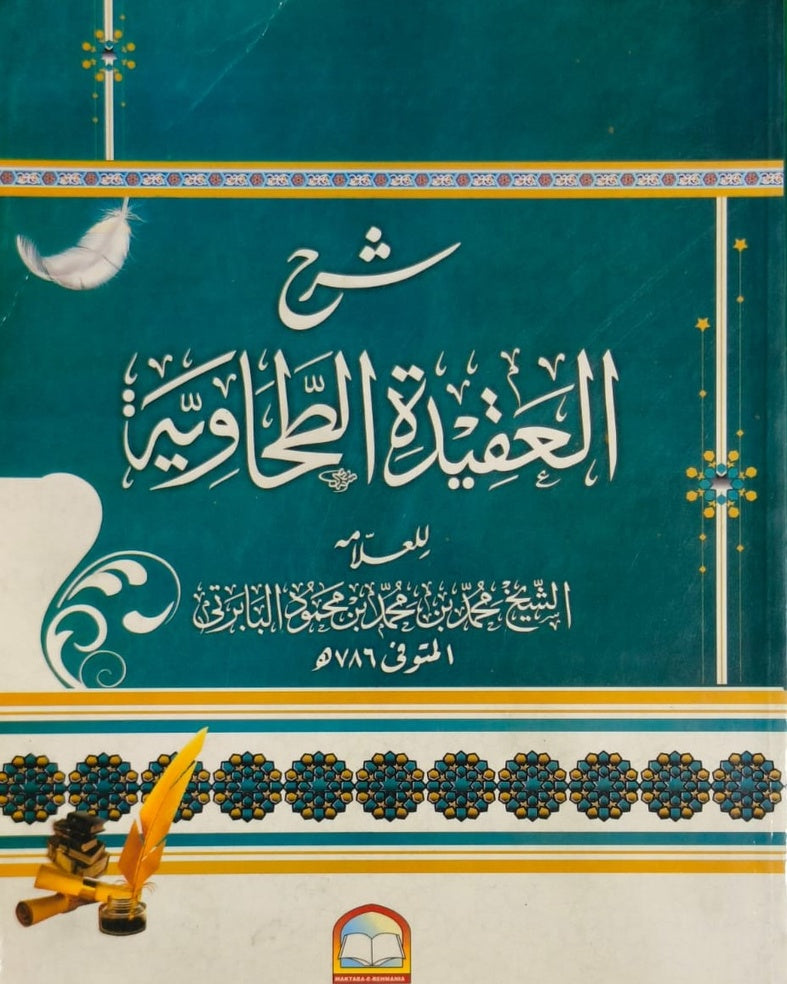 شرح
العَقِيْدَةِ الطَّحَاوِيَّة
لِلعلّامه
الشَّيْخ مُحمَّد بْن مُحمَّد بْن مَحمُوْد البَابَرتي
المتوفى ٧٨٦ھ
MAKTABA-E-REHMANIA